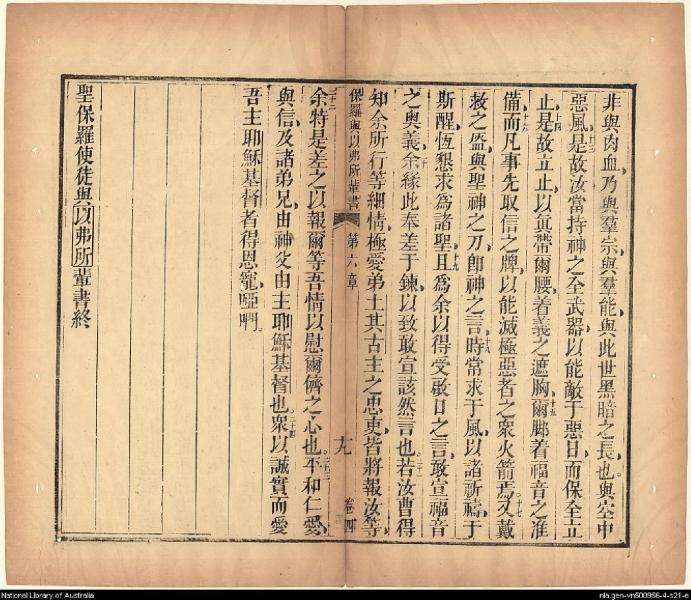 非與肉血乃與羣宗與羣能與此世黑暗之長也與空中
惡風十三是故汝當持神之全武器以能敵于惡日而保全立
止十四是故立止以眞帶爾腰着義之遮胸十五爾脚着福音之准
備十六而凡事先取信之牌以能滅極惡者之衆火箭焉十七又戴
救之盔與聖神之刀卽神之言十八時常求于風以諸祈禱于
斯醒恆懇求爲諸聖十九且爲余以得受啟口之言敢宣福音
之奧義二十余緣此奉差于鍊以致敢宣該然言也二十一若汝曹得
知余所行等細情極愛弟土其古主之忠吏皆將報汝等
保羅與以弗所輩書 第六章 十九 卷四
二十二余特是差之以報爾等吾情以慰爾儕之心也二十三平和仁愛
與信及諸弟兄由神父由主耶穌基督也二十四衆以誠實而愛
吾主耶穌基督者得恩寵啞門
聖保羅使徒與以弗所輩書終
National Library of Australia
nla.gen-vn500956-4-s21-e